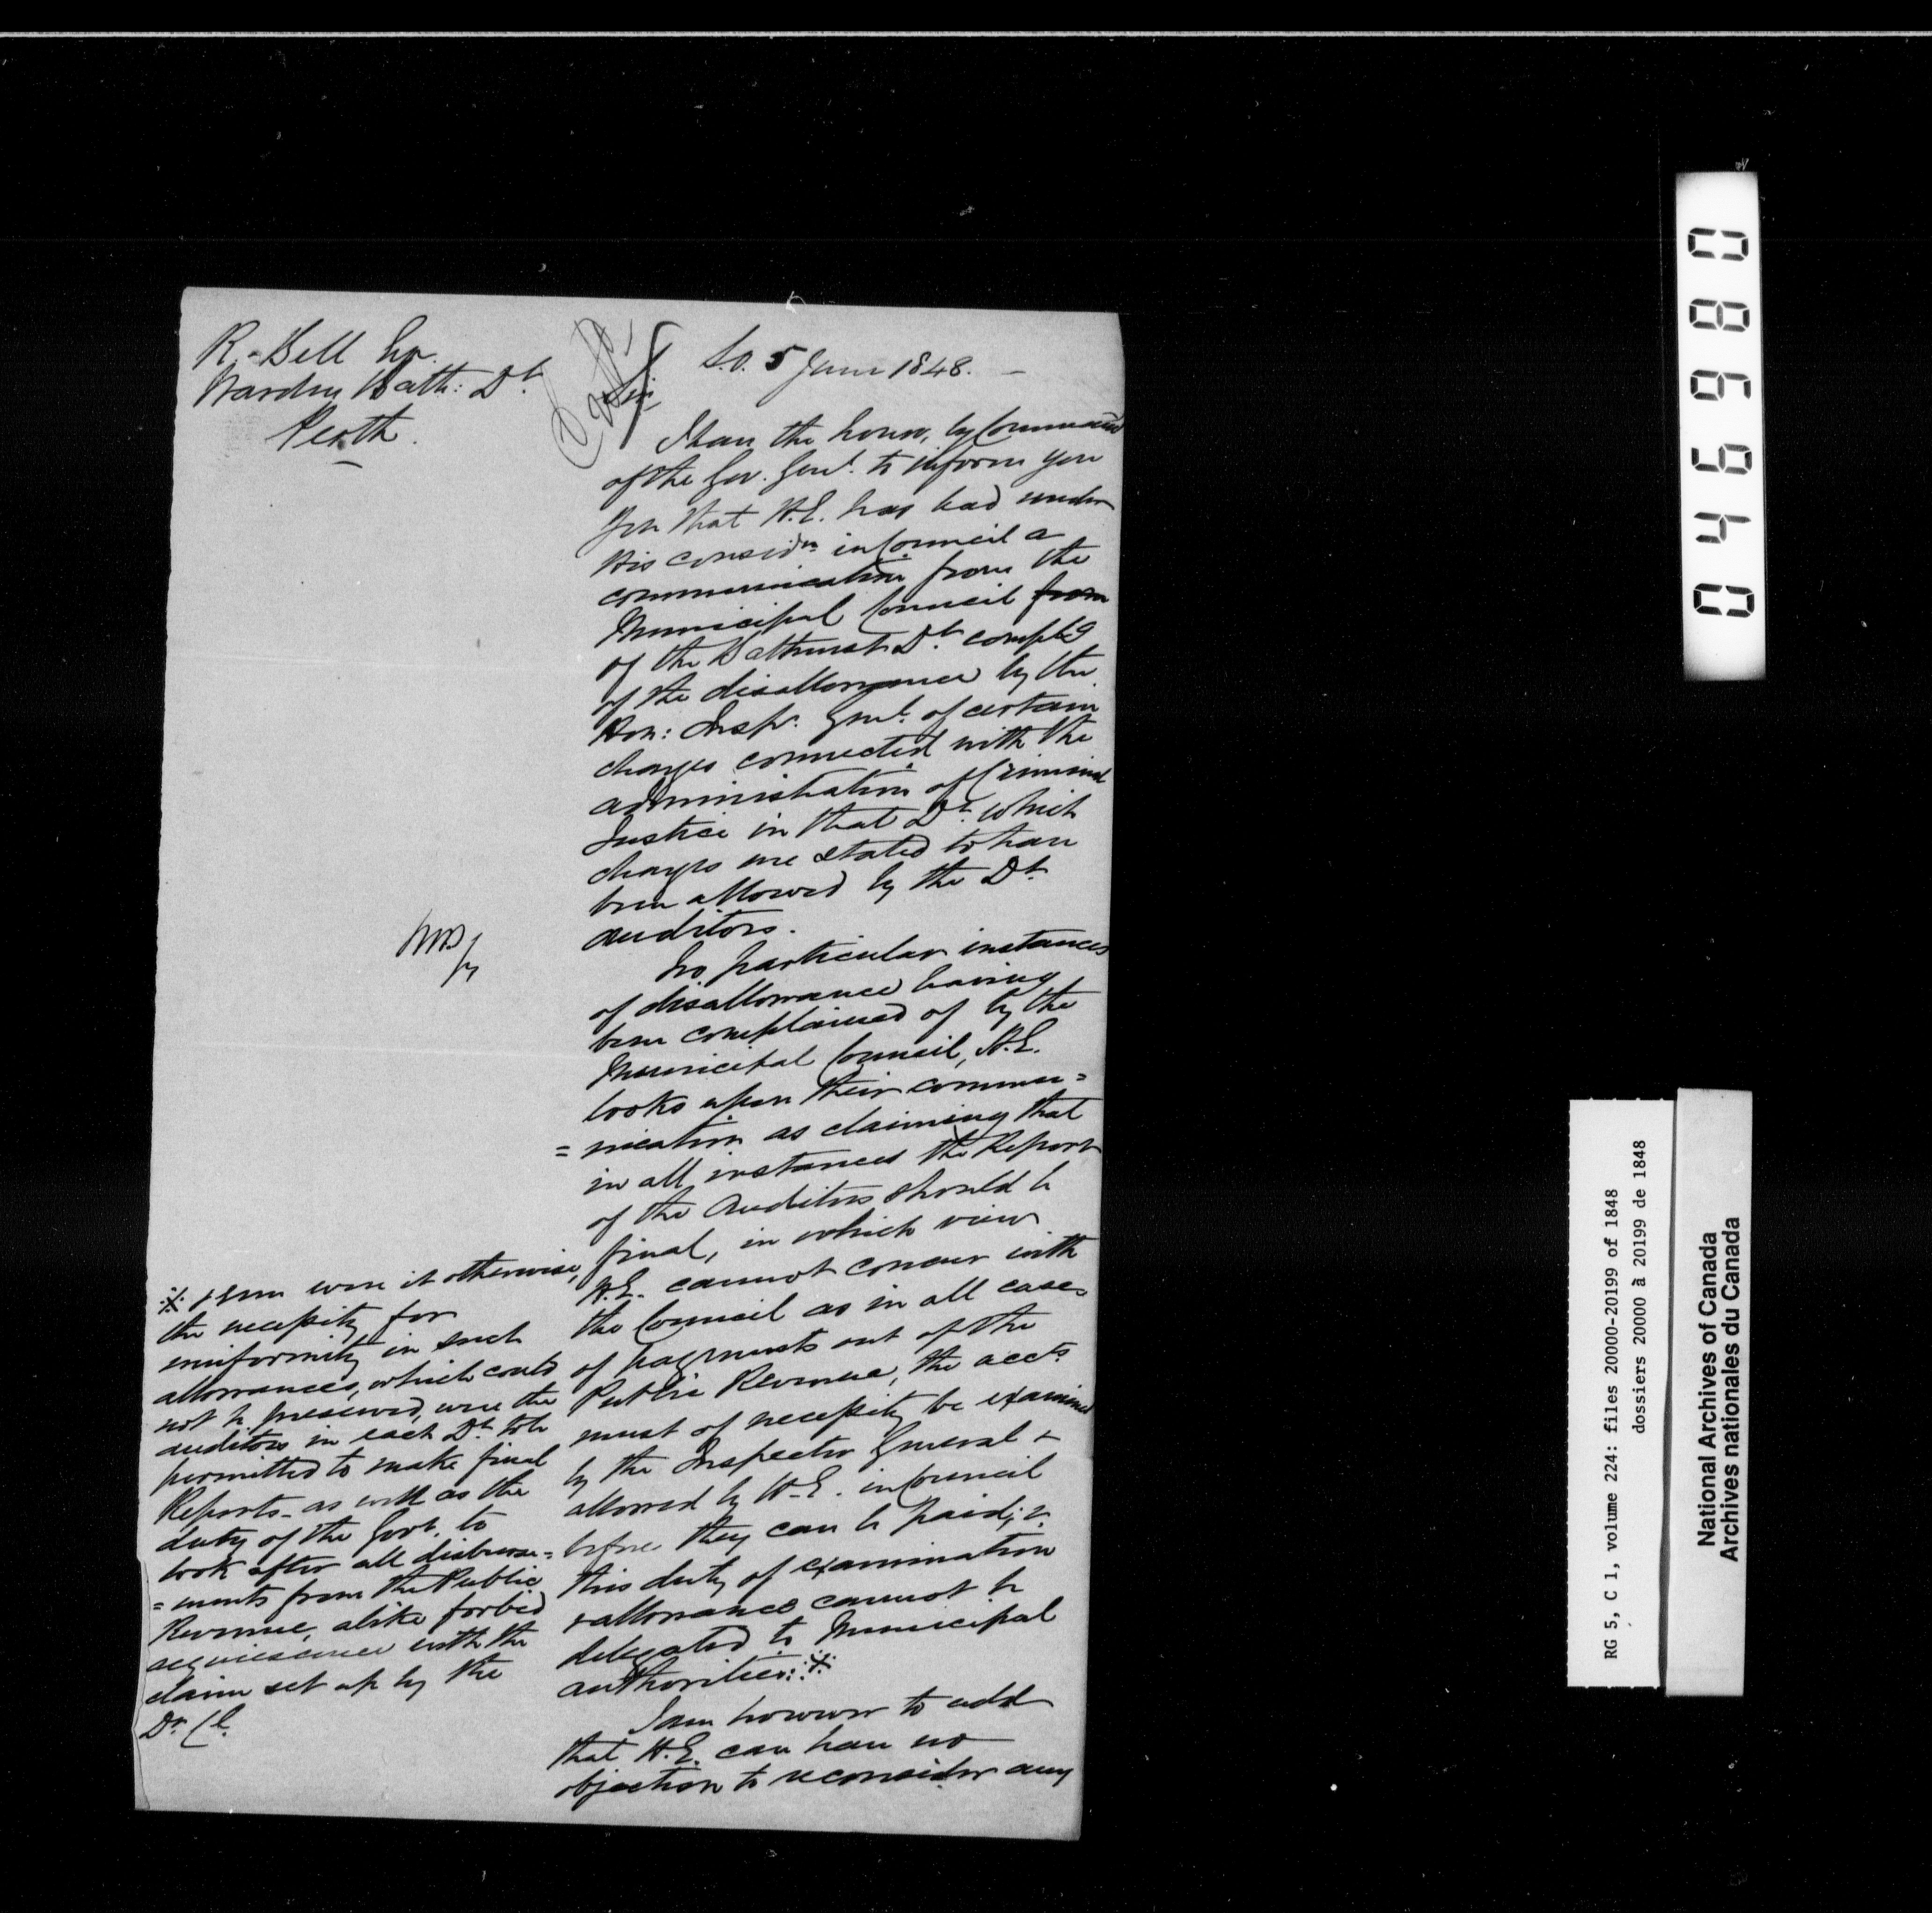 R. Bell Esqr.
Warden Bath: Dt.
Perth.
Draft
S.O. 5 June 1848.
Sir,
I have the honor, by Command
of the Gov. Genl. to inform you
you that H.E. has had under
His considn. in Council a
communication from the
Municipal Council from
of the Bathurst Dt. complg
of the disallowance by the
Hon: Inspr. Genl. of certain
charges connected with the
administration of Criminal
Justice in that Dt. which
charges are stated to have
been allowed by the Dt.
auditors.
No particular instances
of disallowance having
been complained of by the
Municipal Council, H.E.
looks upon their commu=
=nication as claiming that
in all instances the Report
of the Auditors should be
final, in which view
H.E. cannot concur with
the Council as in all cases
of payments out of the
Public Revenue, the accts.
must of necessity be examined
by the Inspector General &
allowed by H.E. in Council
before they can be paid; &
this duty of examination
& allowance cannot be
delegated to Municipal
authorities: ※
I am however to add
that H.E. can have no
objection to reconsider any
※ & even were it otherwise,
the necessity for
uniformity in such
allowances, which could
not be preserved, were the
auditors in each Dt. to be
permitted to make final
Reports - as well as the
duty of the Govt. to
look after all disburse=
=ments from the Public
Revenue, alike forbid
acquiescence with the
claim set up by the
Dt. Cl.
046980
RG 5, C 1, volume 224: files 20000-20199 of 1848
dossiers 20000 à 20199 de 1848
National Archives of Canada
Archives nationales du Canada